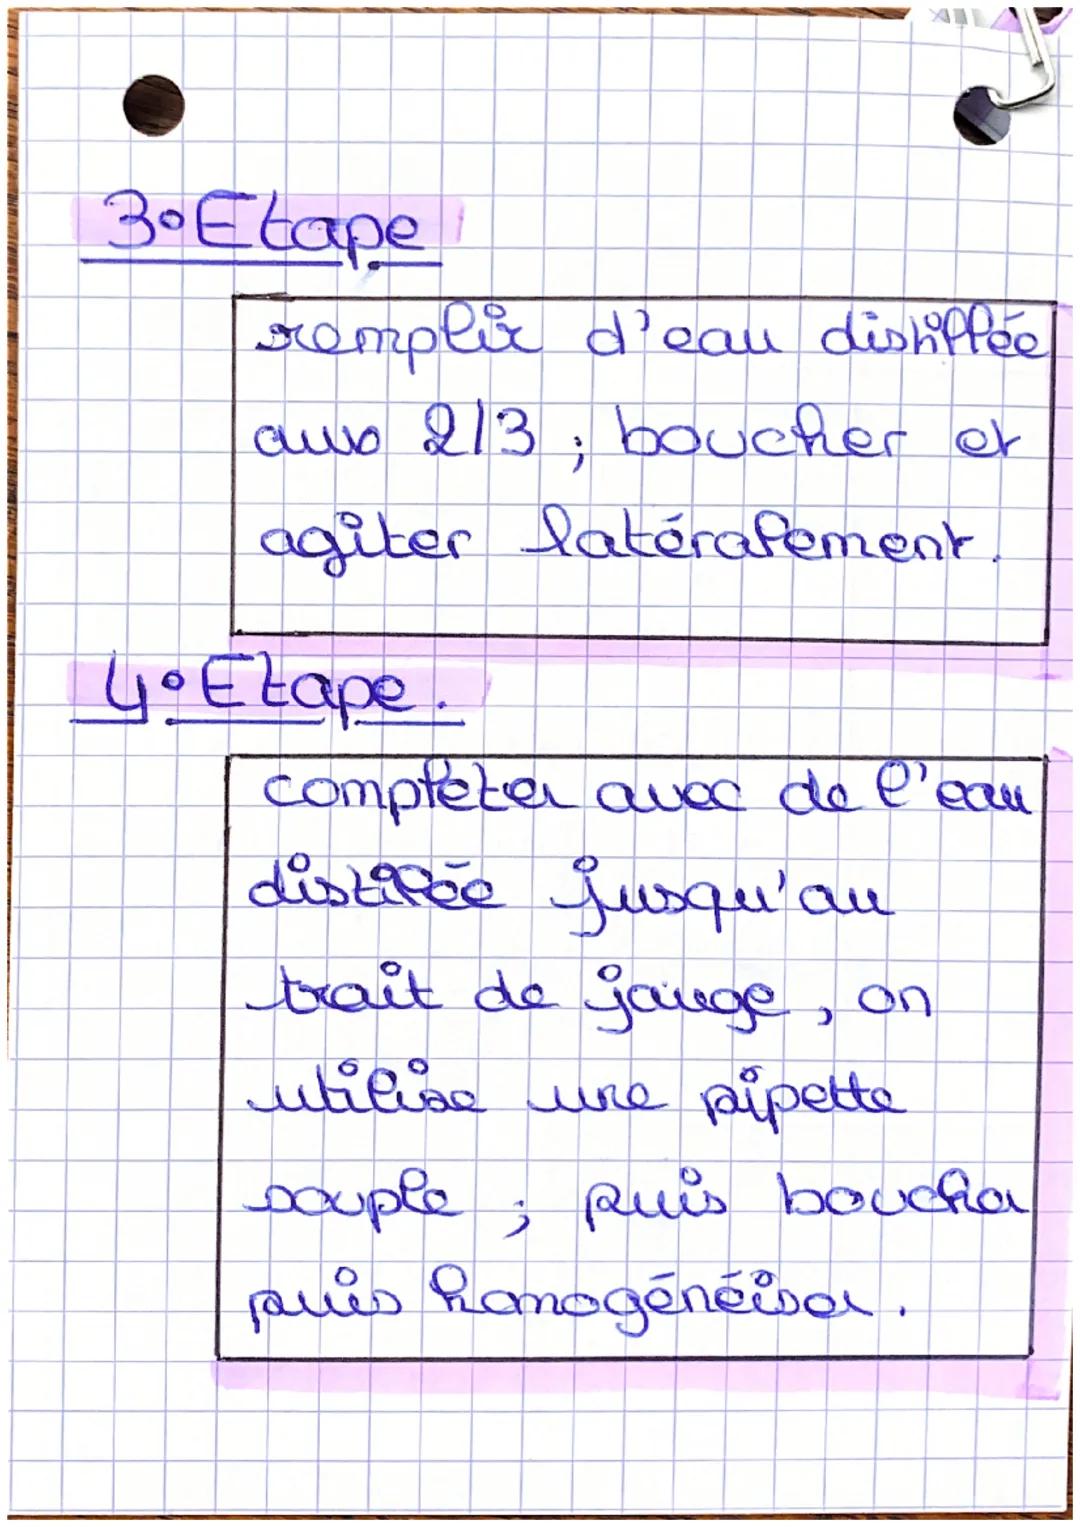 3° Etape
remplir d'eau distillée
aux 2/3 ; boucher et
agiter latéralement.
4° Etape.
completer avec de l'eau
distilée jusqu'au
trait de jauge, on
utilise une pipette
souple ; puis boucher
puis homogénéiser.